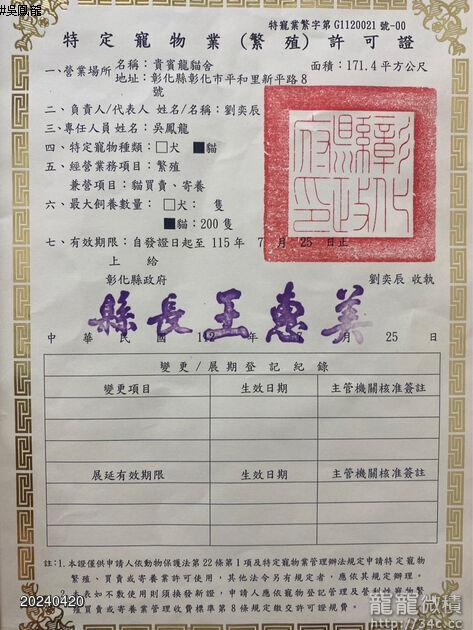 #吳鳳龍
特寵業繁字第G1120021號-00
特定寵物業(繁殖)許可證
一、營業場所 名稱：貴賓龍貓舍 面積：171.4平方公尺
地址：彰化縣彰化市平和里新平路8號
二、負責人/代表人 姓名/名稱：劉奕辰
三、專任人員 姓名：吳鳳龍
四、特定寵物種類：□犬 ■貓
五、經營業務項目：繁殖
兼營項目：貓買賣、寄養
六、最大飼養數量：□犬： 隻
■貓：200 隻
七、有效期限：自發證日起至 115年 7 月 25 日止
上 給
彰化縣政府 劉奕辰 收執
彰化縣政府印
縣長王惠美
中 華 民 國 112 年 7 月 25 日
變更/展期登記紀錄
變更項目 生效日期 主管機關核准簽註
展延有效期限 生效日期 主管機關核准簽註
註：1.本證僅供申請人依動物保護法第22條第1項及特定寵物業管理辦法規定申請特定寵物
繁殖、買賣或寄養業許可使用，其他法令另有規定者，應依其規定辦理。
2.本表如不敷使用則須換發新證，申請人應依寵物登記管理及營利性寵物繁
殖買賣或寄養業管理收費標準第8條規定繳交許可證規費。
20240420
龍龍微積
http://34c.cc